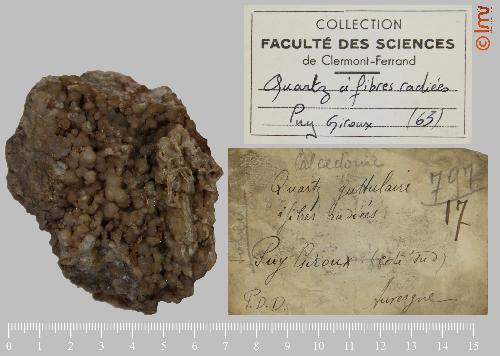 COLLECTION
FACULTÉ DES SCIENCES
de Clermont-Ferrand
Quartz à fibres radiées
Puy Giroux (63)
Calcédoine
797
Quartz guttulaire
17
à fibres radiées
Puy Giroux (coté Sud)
P.D.D. Auvergne
© lmv
0 1 2 3 4 5 6 7 8 9 10 11 12 13 14 15